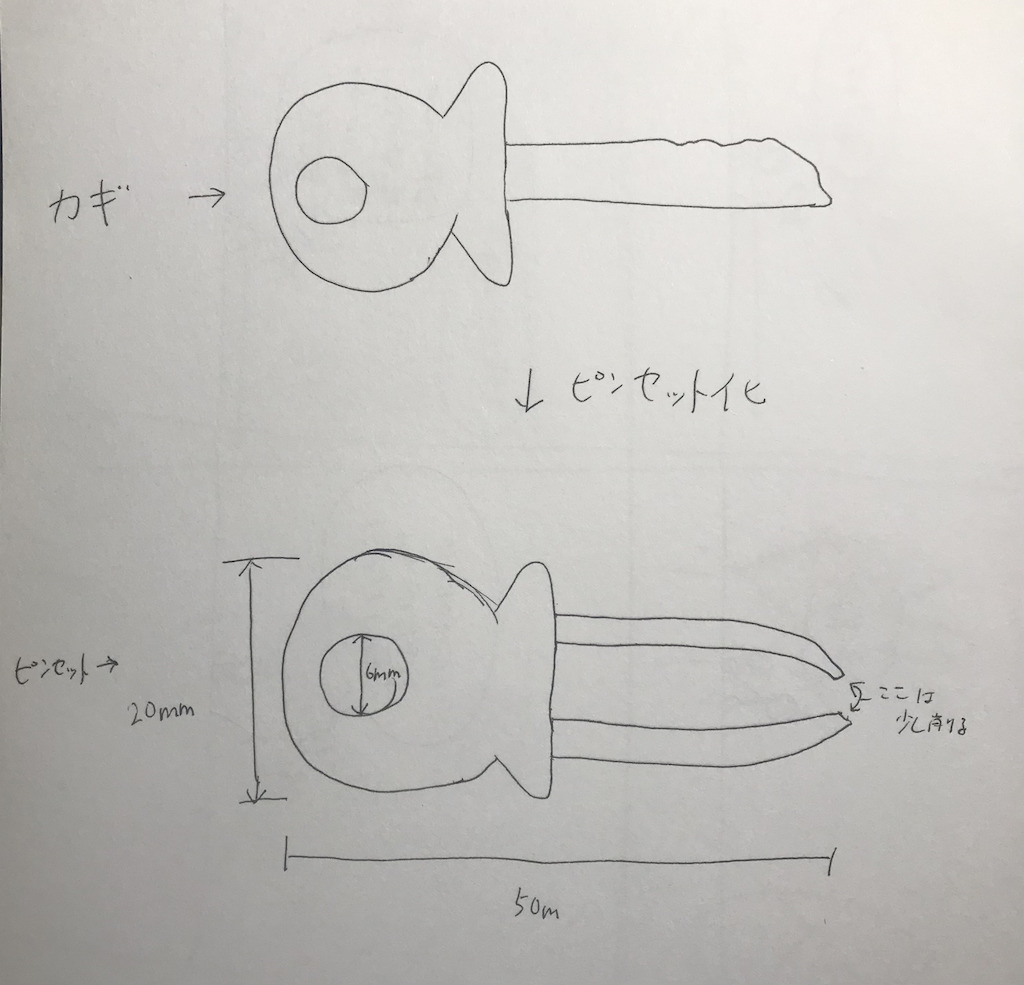 カギ →
↓ ピンセット化
ピンセット→
20mm
6mm
ここは
少し削る
50m